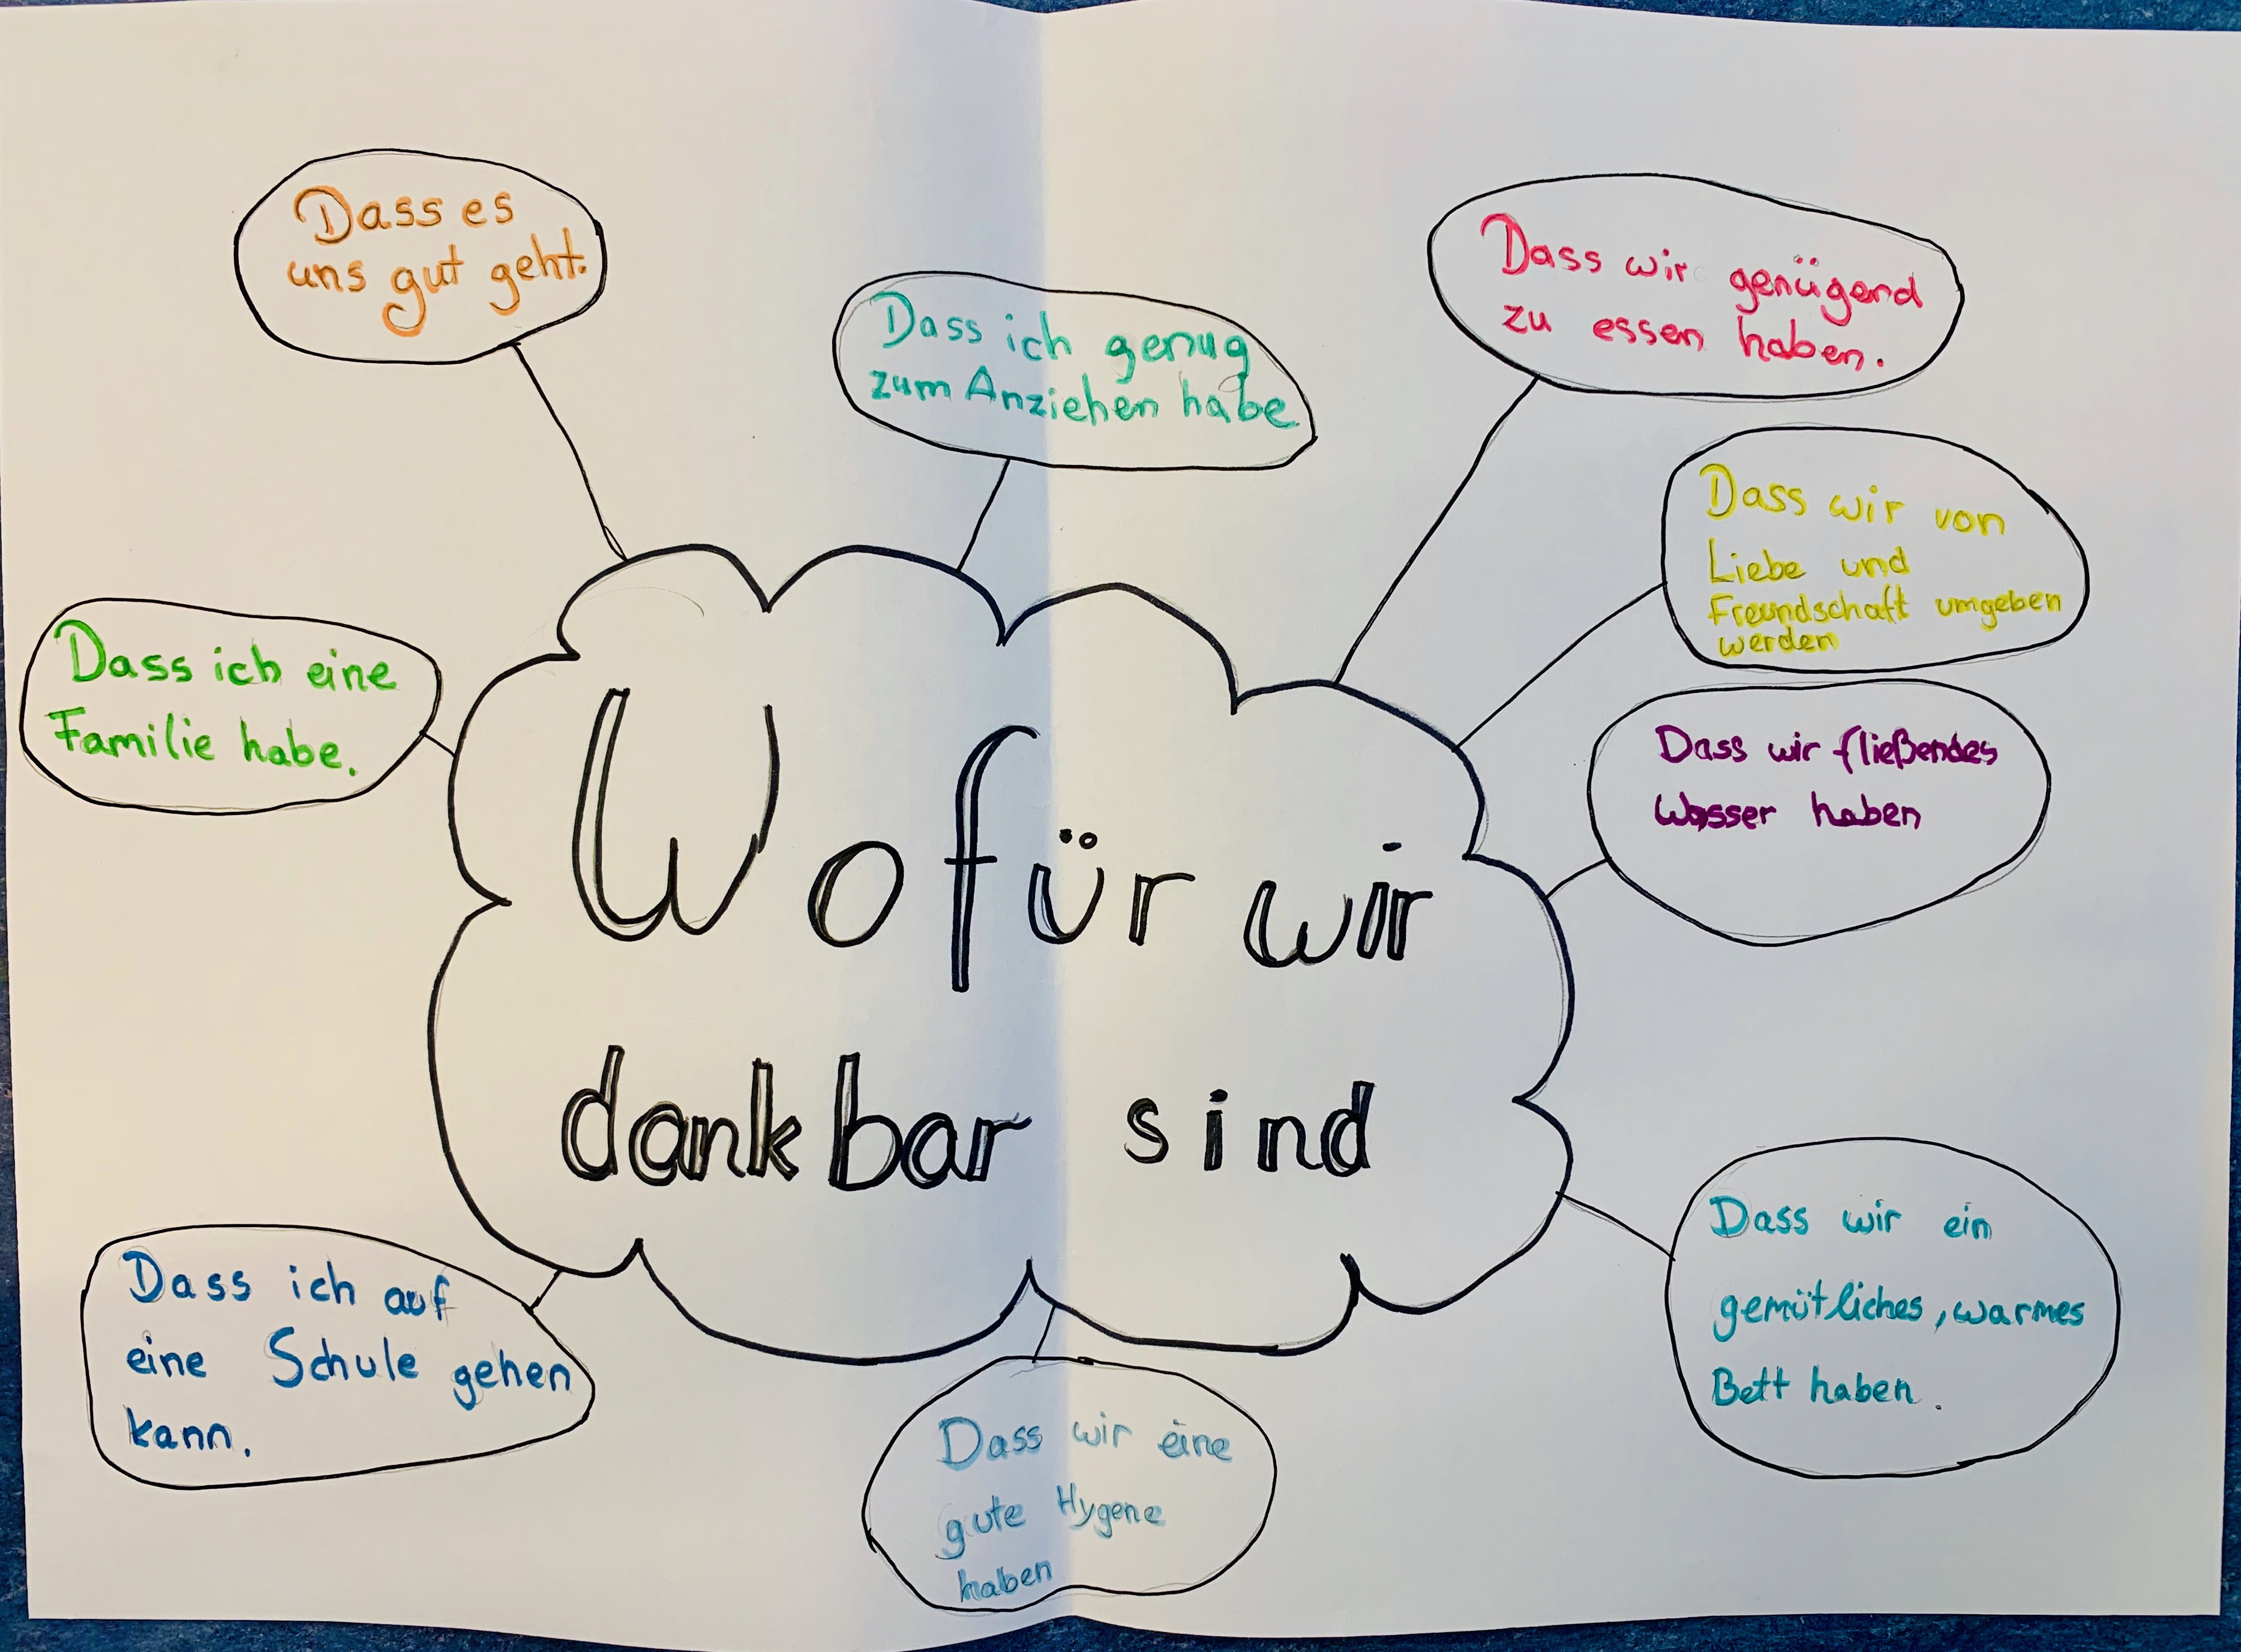 Dass es
uns gut geht.
Dass ich genug
zum Anziehen habe
Dass wir genügend
zu essen haben.
Dass wir von
Liebe und
Freundschaft umgeben
werden
Dass ich eine
Familie habe.
Dass wir fließendes
Wasser haben
Wofür wir
dankbar sind
Dass ich auf
eine Schule gehen
kann.
Dass wir eine
gute Hygene
haben
Dass wir ein
gemütliches, warmes
Bett haben.